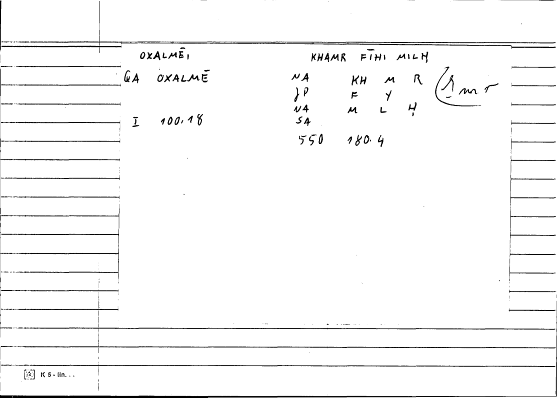 OXALMĒ, KHAMR FĪHI MILḤ
GA OXALMĒ NA KH M R
JP F Y
NA M L Ḥ
I 100.18 SA
550 180.4
K 5 - lin...